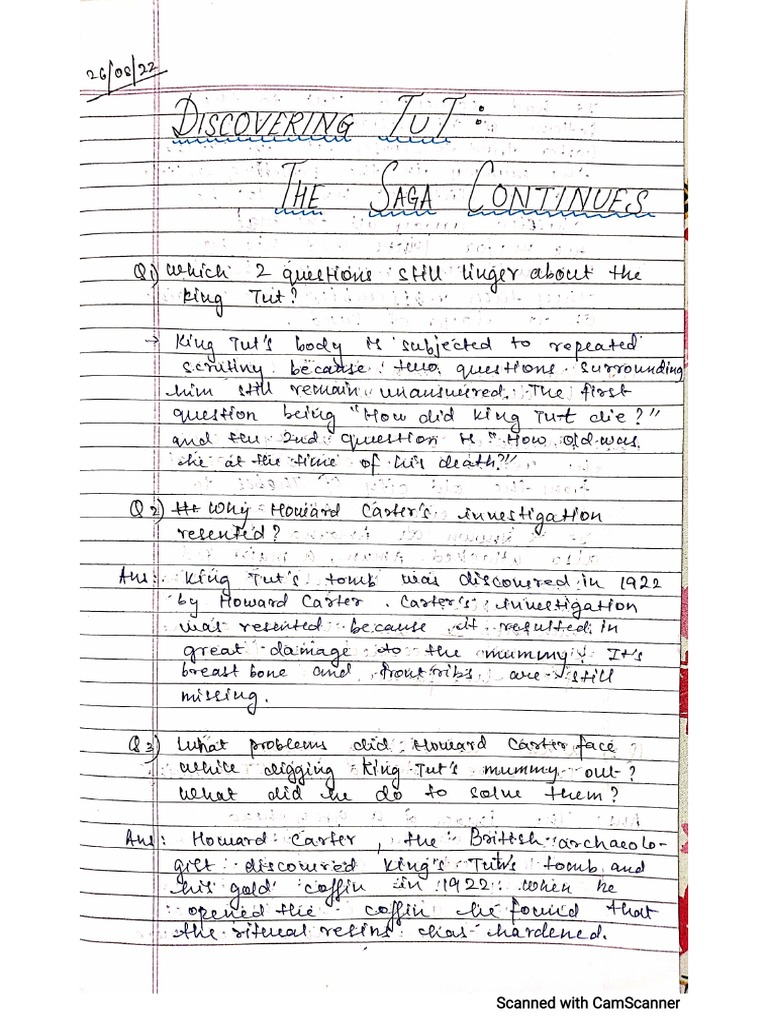 26/08/22
DISCOVERING TUT:
THE SAGA CONTINUES
Q1) Which 2 questions still linger about the
king Tut?
→ King Tut's body is subjected to repeated
scrutiny because two questions surrounding
him still remain unanswered. The first
question being "How did king Tut die?"
and the 2nd question is "How old was
he at the time of his death?"
Q2) Why Howard Carter's investigation
resented?
Ans: King Tut's tomb was discovered in 1922
by Howard Carter. Carter's investigation
was resented because it resulted in
great damage to the mummy. It's
breast bone and front ribs are still
missing.
Q3) What problems did Howard Carter face
while digging King Tut's mummy out?
What did he do to solve them?
Ans: Howard Carter, the British archaeolo-
gist discovered king's Tut's tomb and
his gold coffin in 1922. When he
opened the coffin he found that
the ritual resins has hardened.
Scanned with CamScanner